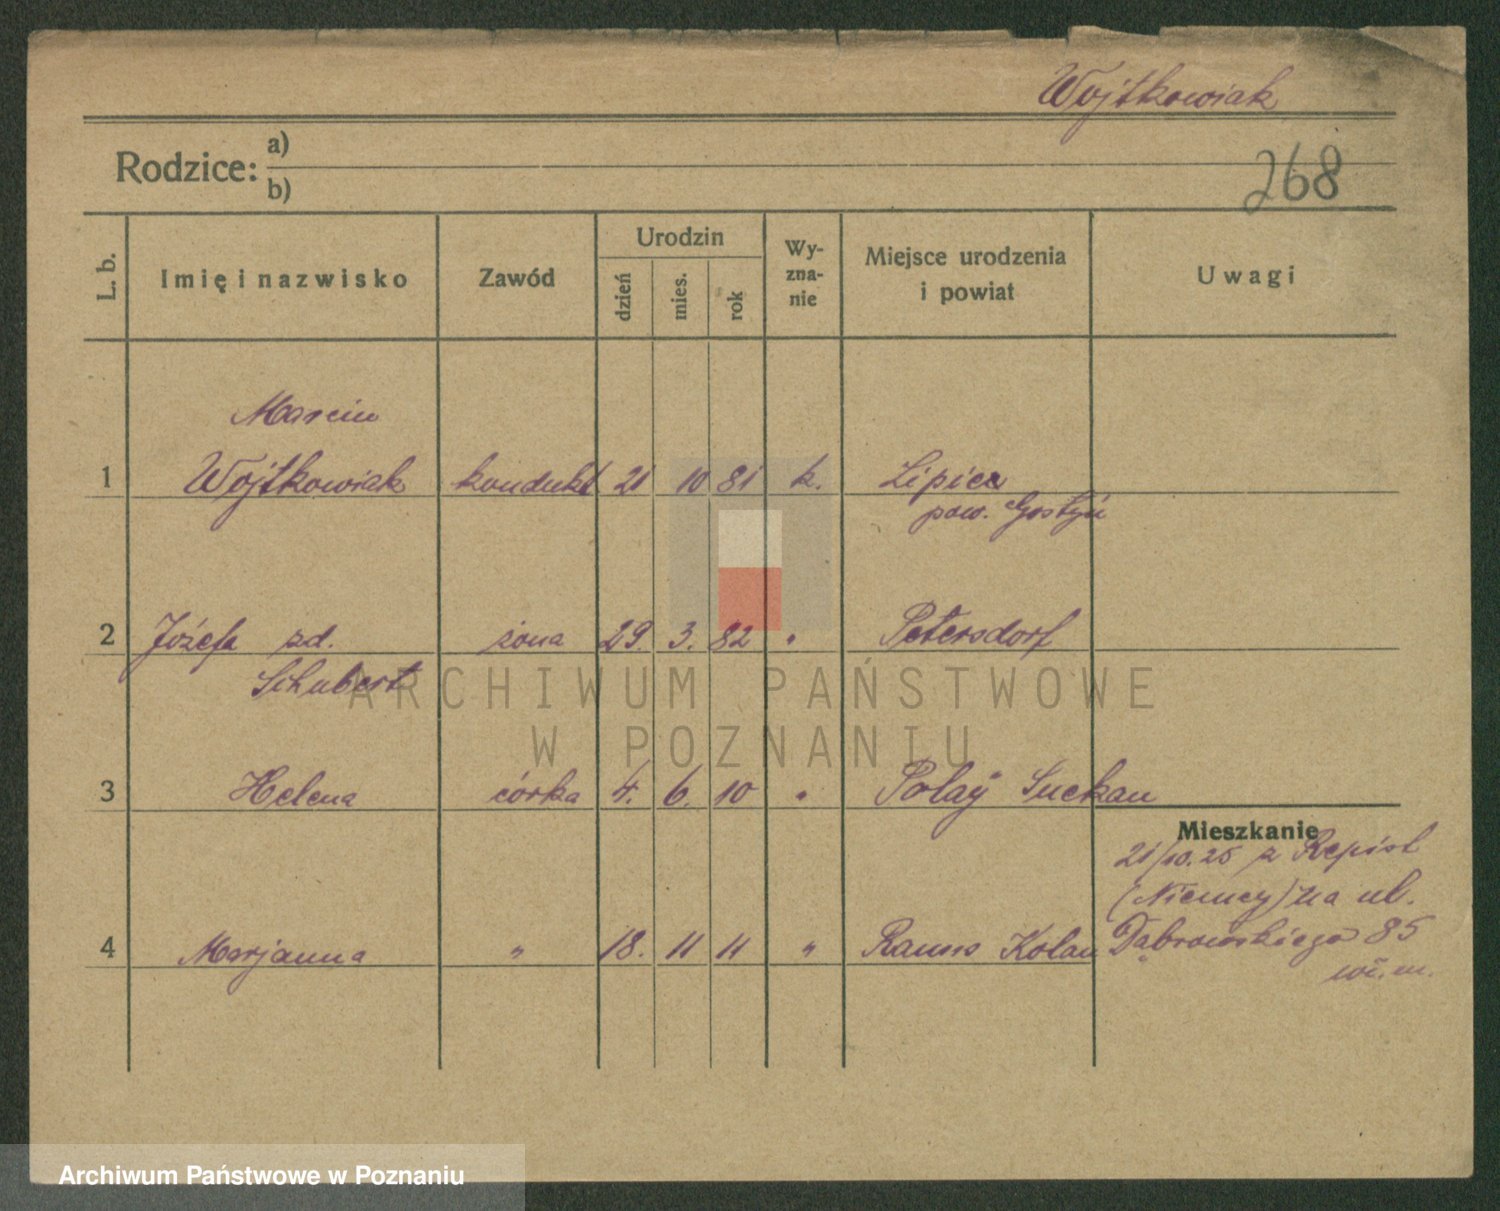 Wojtkowiak
Rodzice: a)
b)
268
L. b.
Imię i nazwisko
Zawód
Urodzin
dzień
mies.
rok
Wy-
zna-
nie
Miejsce urodzenia
i powiat
Uwagi
Marcin
1 Wojtkowiak kondukt 21 10 81 k. Lipicz
pow. Gostyń
2 Józefa zd. żona 29. 3. 82 " Petersdorf
Schubert
ARCHIWUM PAŃSTWOWE
W POZNANIU
3 Helena córka 4. 6. 10 " Suckau
Mieszkanie
21/10.25 z
(Niemcy) na ul.
4 Marjanna " 18. 11 11 " Dąbrowskiego 85
Archiwum Państwowe w Poznaniu